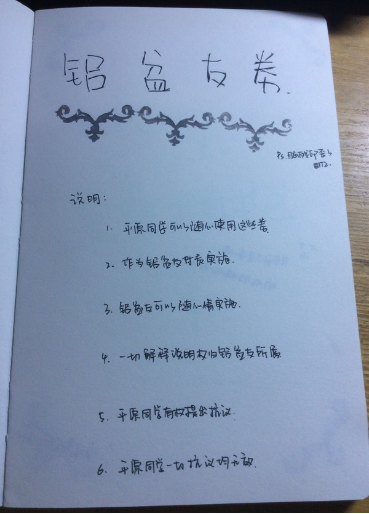 铝盆友券.
说明:
1. 平原同学可以随心使用这些券
2. 作为铝盆友有权实施.
3. 铝盆友可以随心情实施.
4. 一切解释说明权归铝盆友所属
5. 平原同学有权提出抗议.
6. 平原同学一切抗议均无效.